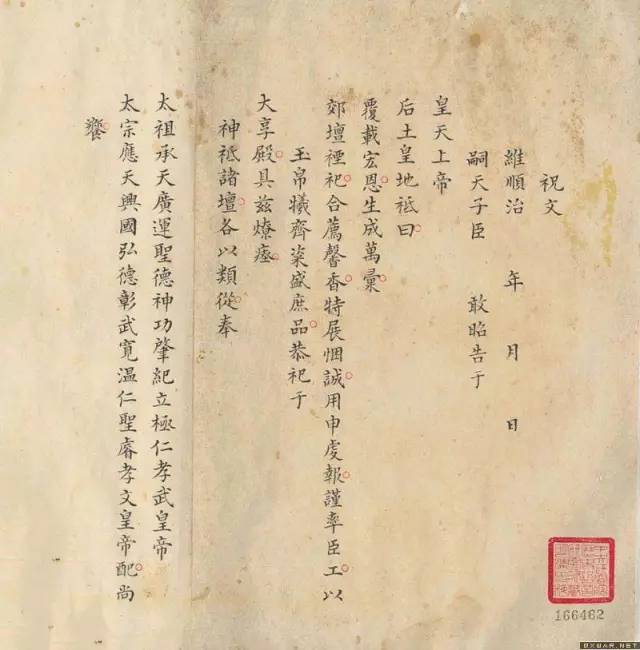 祝文
維順治 年 月 日
嗣天子臣 敢昭告于
皇天上帝
后土皇地祇曰
覆載宏恩生成萬彙
郊壇禋祀合薦馨香特展悃誠用申虔報謹率臣工以
玉帛犧齊粢盛庶品恭祀于
大享殿具茲燎瘞
神祇諸壇各以類從奉
太祖承天廣運聖德神功肇紀立極仁孝武皇帝
太宗應天興國弘德彰武寬溫仁聖睿孝文皇帝配尚
饗
166462
DXUAR.NET